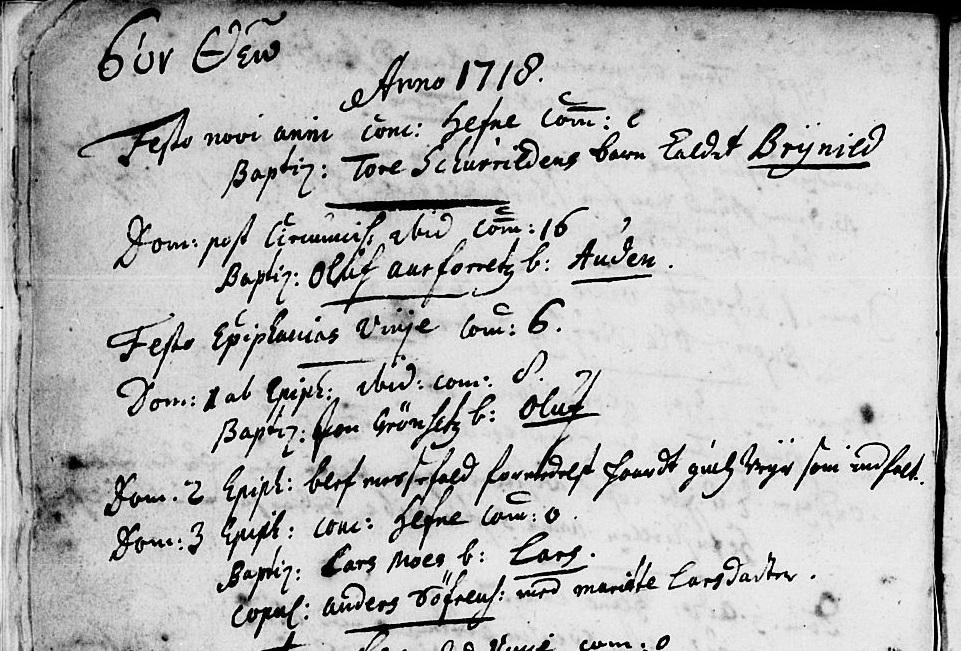 Σὺν Θεῷ
Anno 1718.
Festo novi anni conc: Hefne Com: 0
Baptiz: Tore Schurrildens barn kaldet Brÿnild
Dom: post Circumcis: ibid com: 16
Baptiz: Oluf aurforretz b: Auden.
Festo Epiphanias Vinje com: 6.
Dom: 1 ab Epiph: ibid: com: 8.
Baptiz: Grönsetz b: Oluf
Dom. 2 Epiph: blef messefald formedelst haardt Veyr som indfalt.
Dom: 3 Epiph: conc: Hefne Com: 0.
Baptiz: Lars Moes b: Lars.
Copul: anders Söfrens: med maritte Larsdatter.
Vinje com: 0